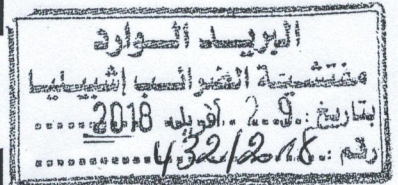 البريد الوارد
مفتشية الضرائب إشبيليا
بتاريخ : 2 9 أفريل 2018
رقم : 432/2018